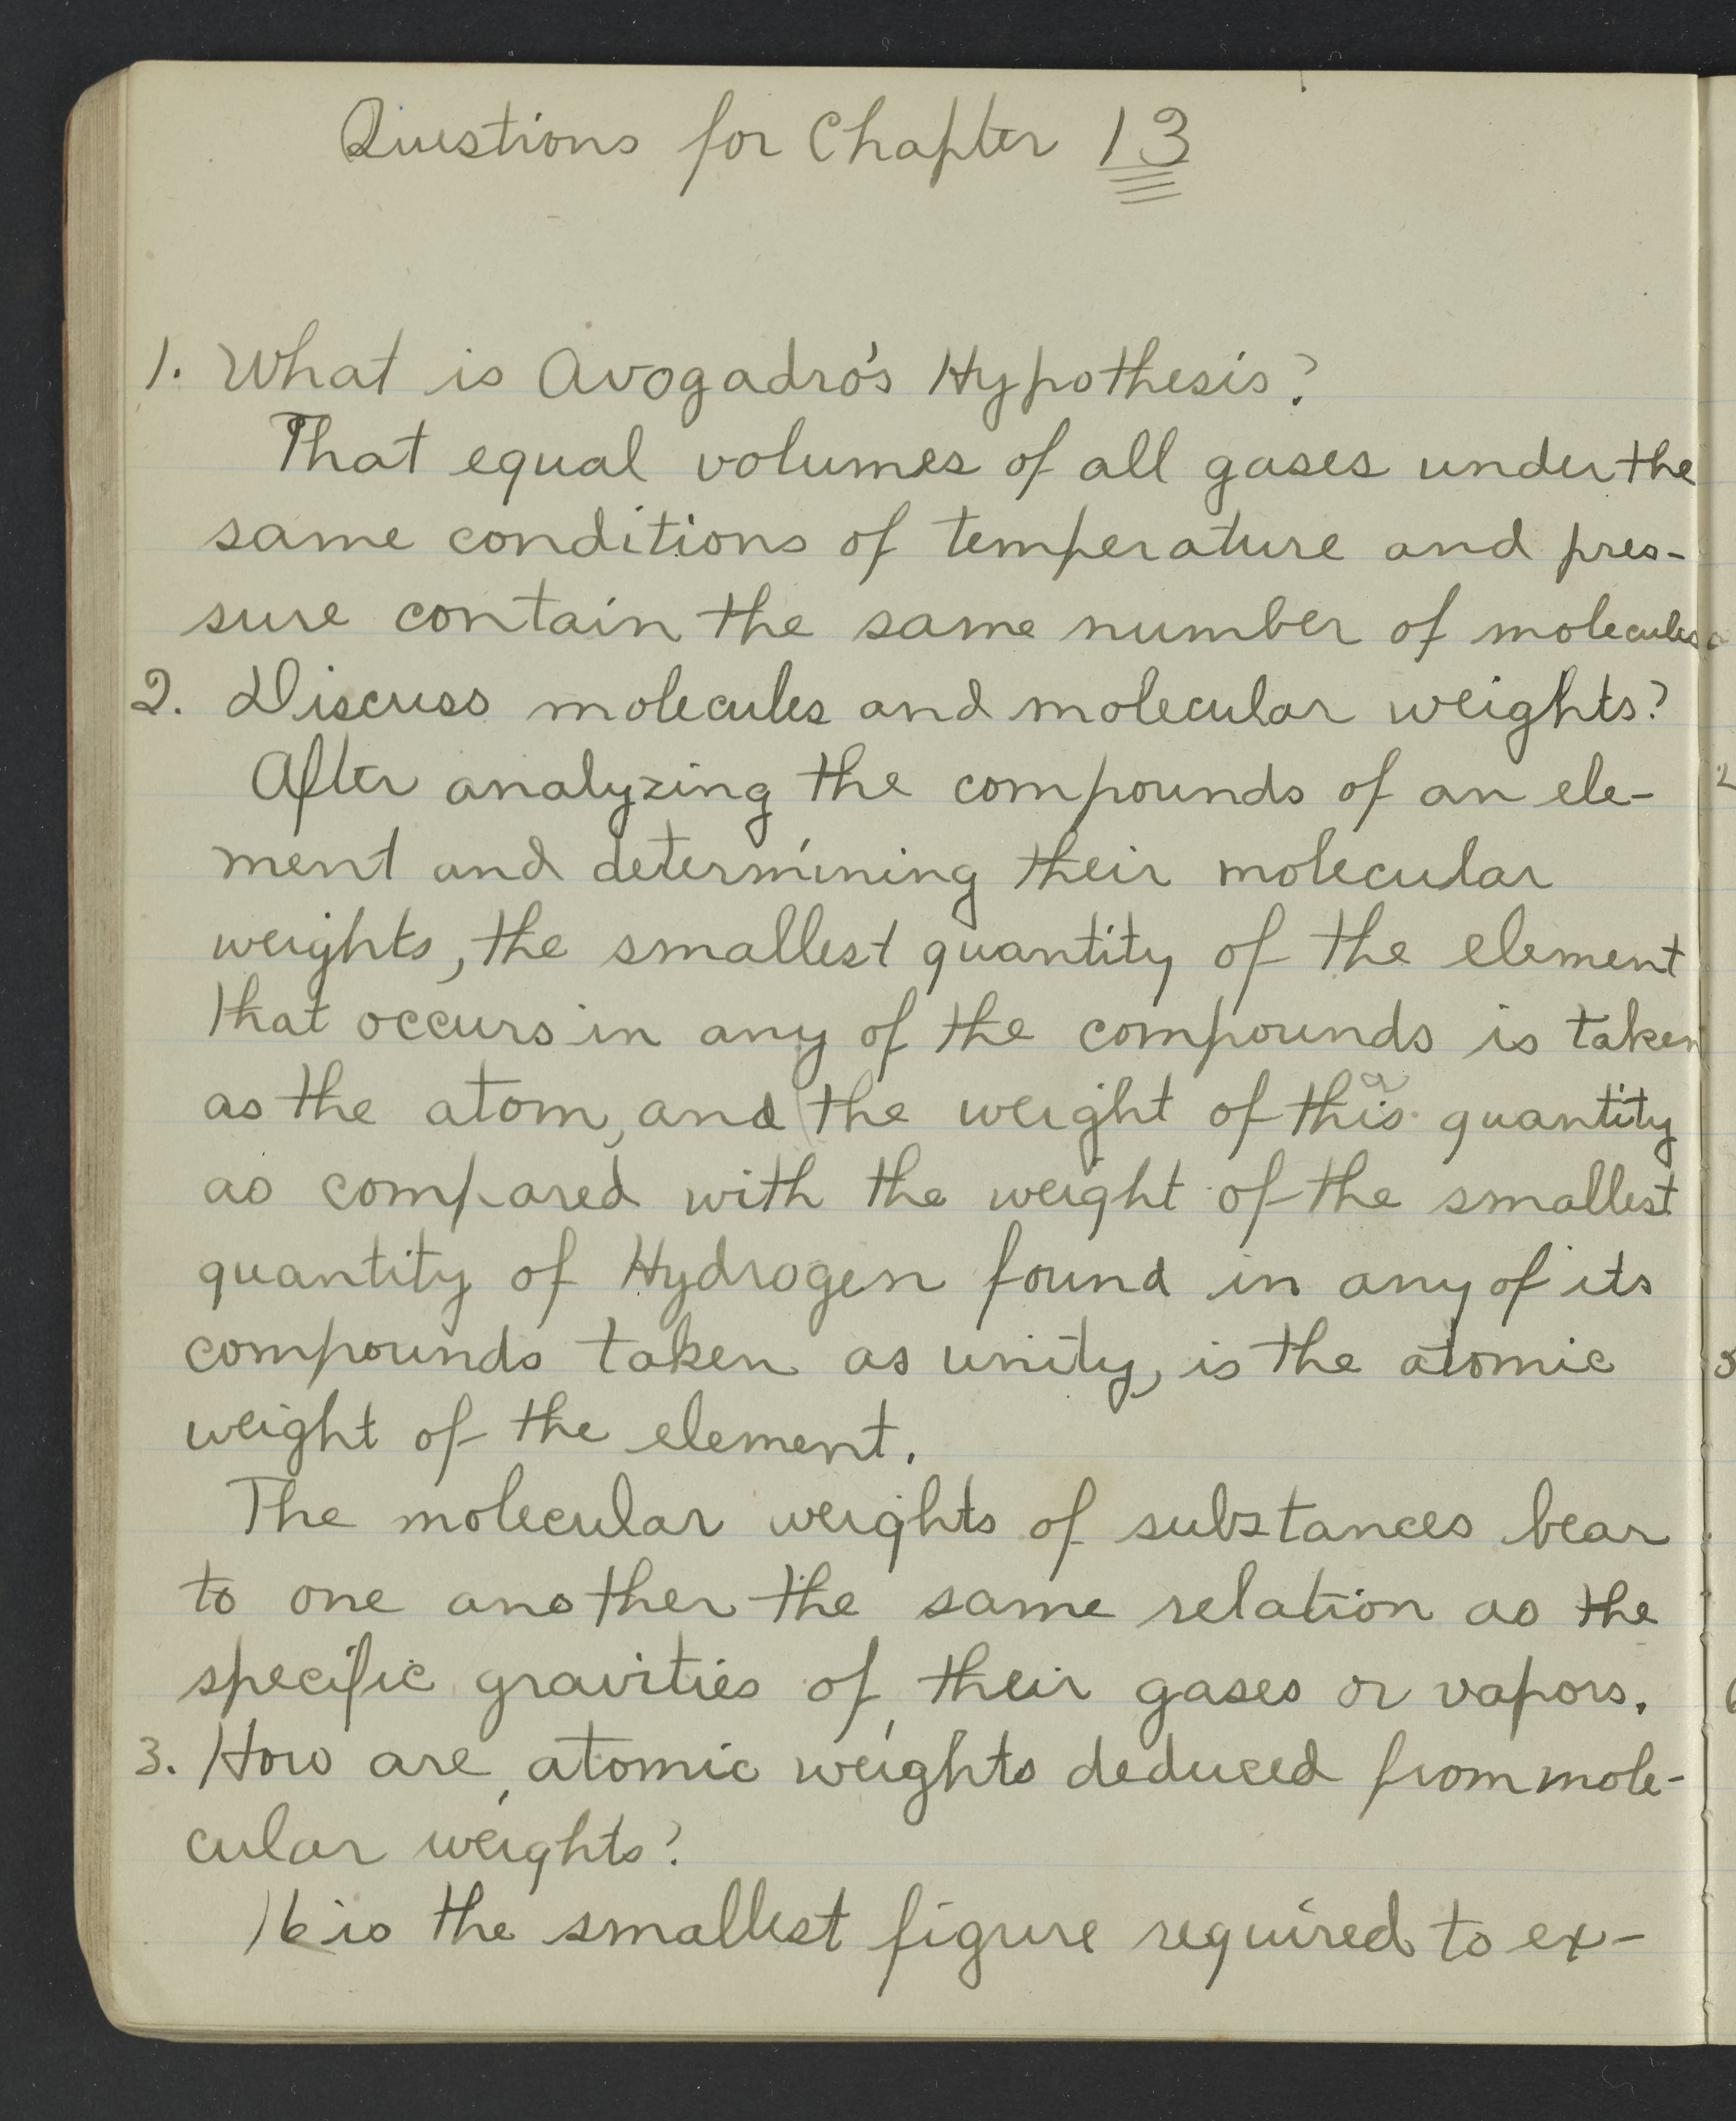 Questions for Chapter 13
1. What is Avogadro's Hypothesis?
That equal volumes of all gases under the
same conditions of temperature and pres-
sure contain the same number of molecules
2. Discuss molecules and molecular weights?
After analyzing the compounds of an ele-
ment and determining their molecular
weights, the smallest quantity of the element
that occurs in any of the compounds is taken
as the atom, and the weight of this quantity
as compared with the weight of the smallest
quantity of Hydrogen found in any of its
compounds taken as unity, is the atomic
weight of the element.
The molecular weights of substances bear
to one another the same relation as the
specific gravities of their gases or vapors.
3. How are atomic weights deduced from mole-
cular weights?
16 is the smallest figure required to ex-